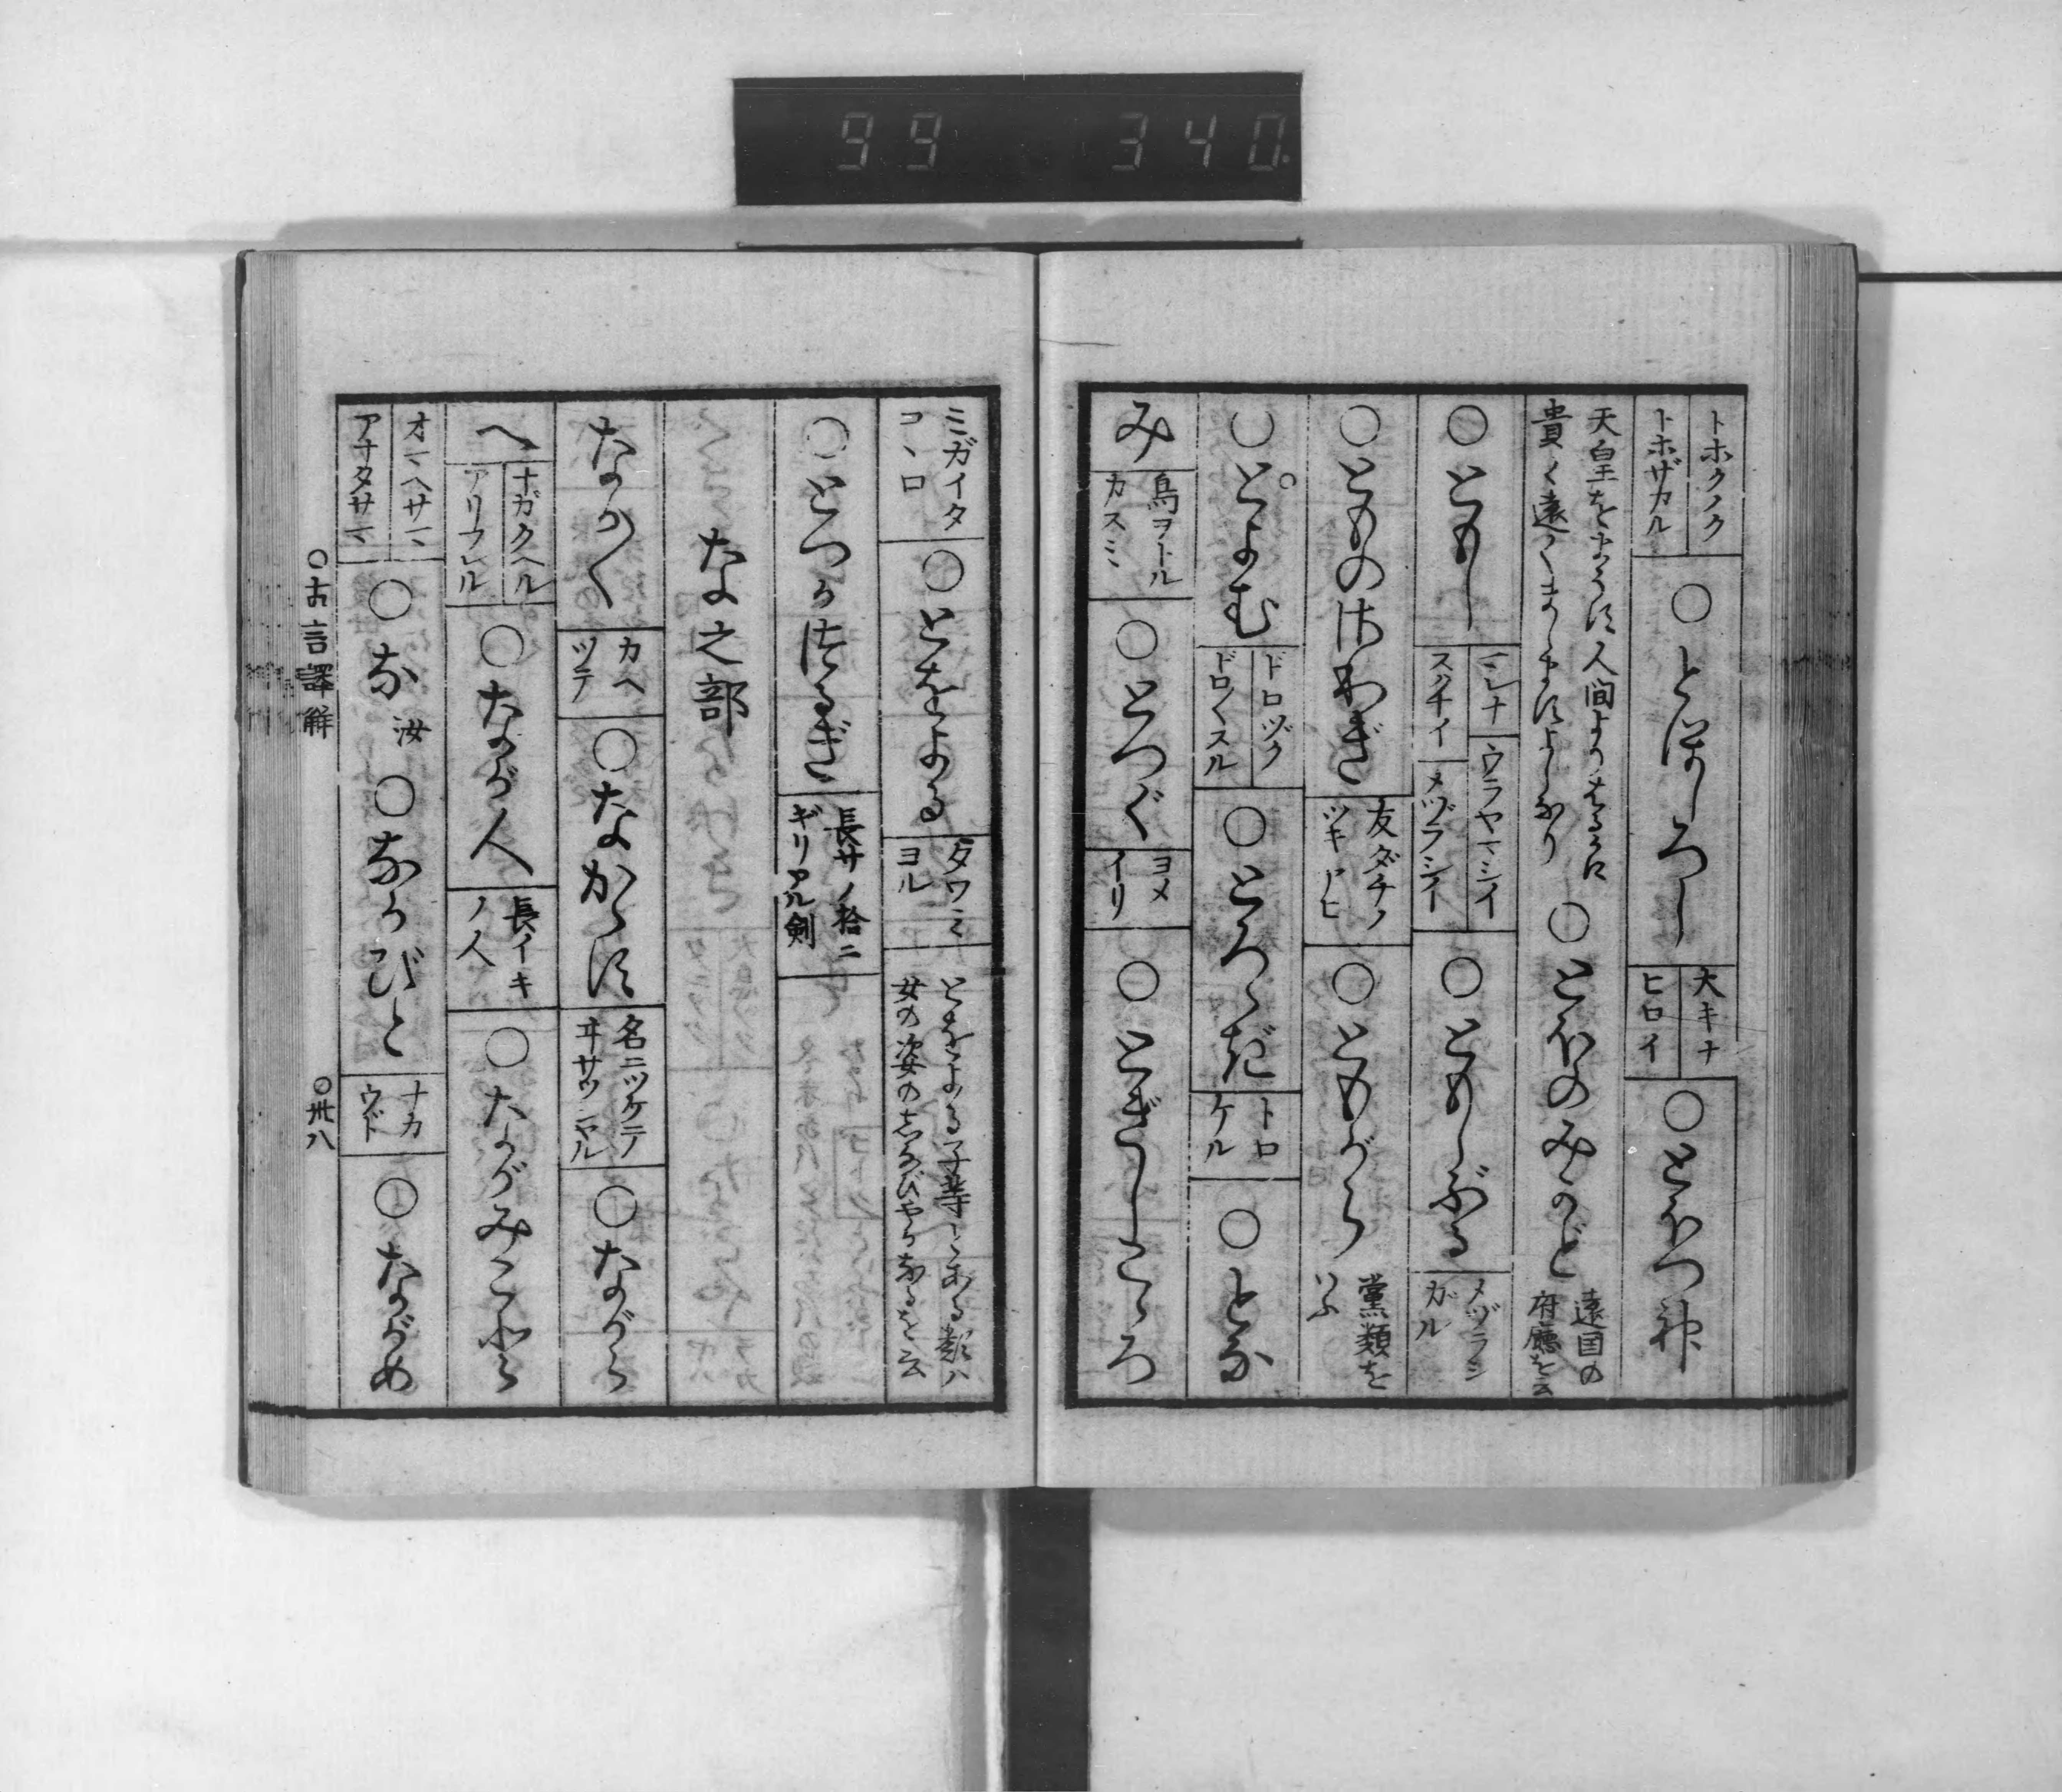 99 340
トホクノク
トホザカル
○とほしろし
大キナ
ヒロイ
○とほつ神
天皇をまうす人間よりはるかに
貴く遠くましますよしなり
○とほのみかど
遠国の
府廳を云
○ともし
ミンナ
スクナイ
ウラヤマシイ
メヅラシイ
○ともしぶる
メヅラシ
ガル
○とものはわざ
友ダチノ
ツキアヒ
○ともがら
黨類を
いふ
○とよむ
ドロヅク
ドロ〳〵スル
○とろゝだ
トロ
ケル
○とな
み
鳥ヲトル
カスミ
○とつぐ
ヨメ
イリ
○とぎしこゝろ
ミガイタ
コヽロ
○とをよる
タワミ
ヨル
とをよる子等とある類ハ
女の姿のしなびやかなるを云
○とつかつるぎ
長サノ拾ニ
ギリアル剣
な之部
なか〳〵
カヘ
ツテ
○なかゝす
名ニツケテ
ヰサウニヤル
○ながら
へ
ナガクヘル
アリフレル
○なが人
長イキ
ノ人
○ながみこふら
オマヘサマ
アナタサマ
○な汝
○なかびと
ナカ
ウド
○ながめ
○古言譯解
○卅八